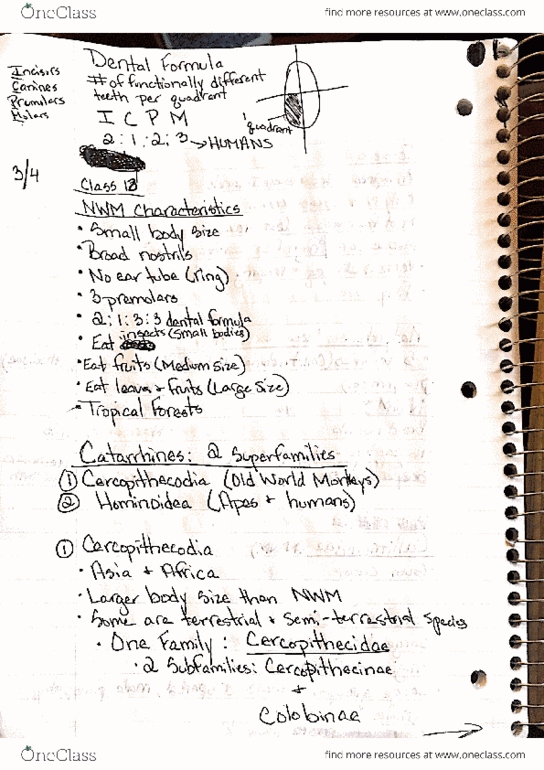 OneClass
find more resources at www.oneclass.com
Dental Formula
Incisirs
Canines
Prumilars
Molars
# of functionally different
teeth per quadrant
I C P M
quadrant
2:1:2:3 → HUMANS
3/4
Class 12
NWM Characteristics
• Small body size
• Broad nostrils
• No ear tube (ring)
• 3 premolars
• 2:1:3:3 dental formula
• Eat insects (small bodies)
• Eat fruits (Medium size)
• Eat leaves + fruits (Large Size)
• Tropical Forests
Catarrhines: 2 Superfamilies
① Cercopithecodia (Old World Monkeys)
② Hominoidea (Apes + humans)
① Cercopithecodia
• Asia + Africa
• Larger body size than NWM
• Some are terrestrial + semi-terrestrial species
• One Family: Cercopithecidae
• 2 Subfamilies: Cercopithecinae
+
Colobinae
OneClass
find more resources at www.oneclass.com